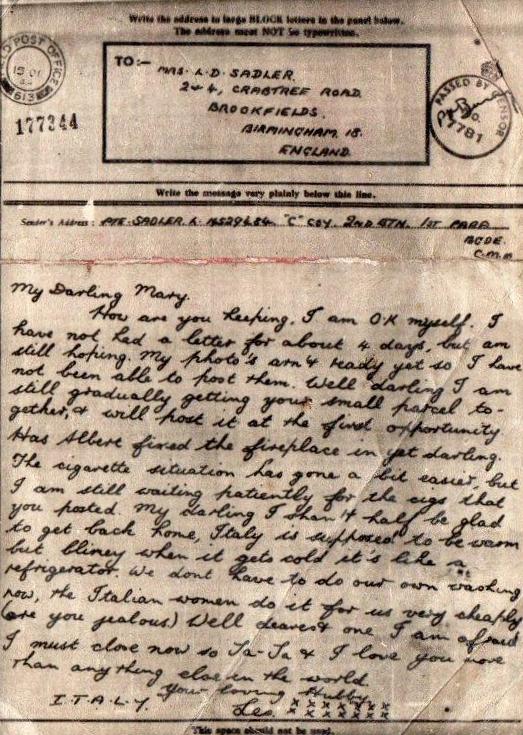 Write the address in large BLOCK letters in the panel below.
The address must NOT be typewritten.
FIELD POST OFFICE
15 OC
613
177344
TO:—
MRS. L.D. SADLER.
2+4, CRABTREE ROAD.
BROOKFIELDS.
BIRMINGHAM. 18.
ENGLAND.
PASSED BY CENSOR
No.
7781
Write the message very plainly below this line.
Sender's Address: PTE. SADLER. L. "C" COY. 2ND BTN. 1ST PARA
BGDE.
C.M.F.
My Darling Mary.
How are you keeping, I am O.K myself. I
have not had a letter for about 4 days, but am
still hoping. My photo's arn't ready yet so I have
not been able to post them. Well darling I am
still gradually getting your small parcel to-
gether, & will post it at the first opportunity
Has Albert fixed the fireplace in yet darling.
The cigarette situation has gone a bit easier, but
I am still waiting patiently for the cigs that
you posted. My darling I shan't half be glad
to get back home, Italy is supposed to be warm
but blimey when it gets cold it's like a
refrigerator. We dont have to do our own washing
now, the Italian women do it for us very cheaply
(are you jealous) Well dearest one I am afraid
I must close now so Ta-Ta & I love you more
than anything else in the world.
Your loving Hubby
I.T.A.L.Y. Les. x x x x x x x
x x x x x x x
This space should not be used.